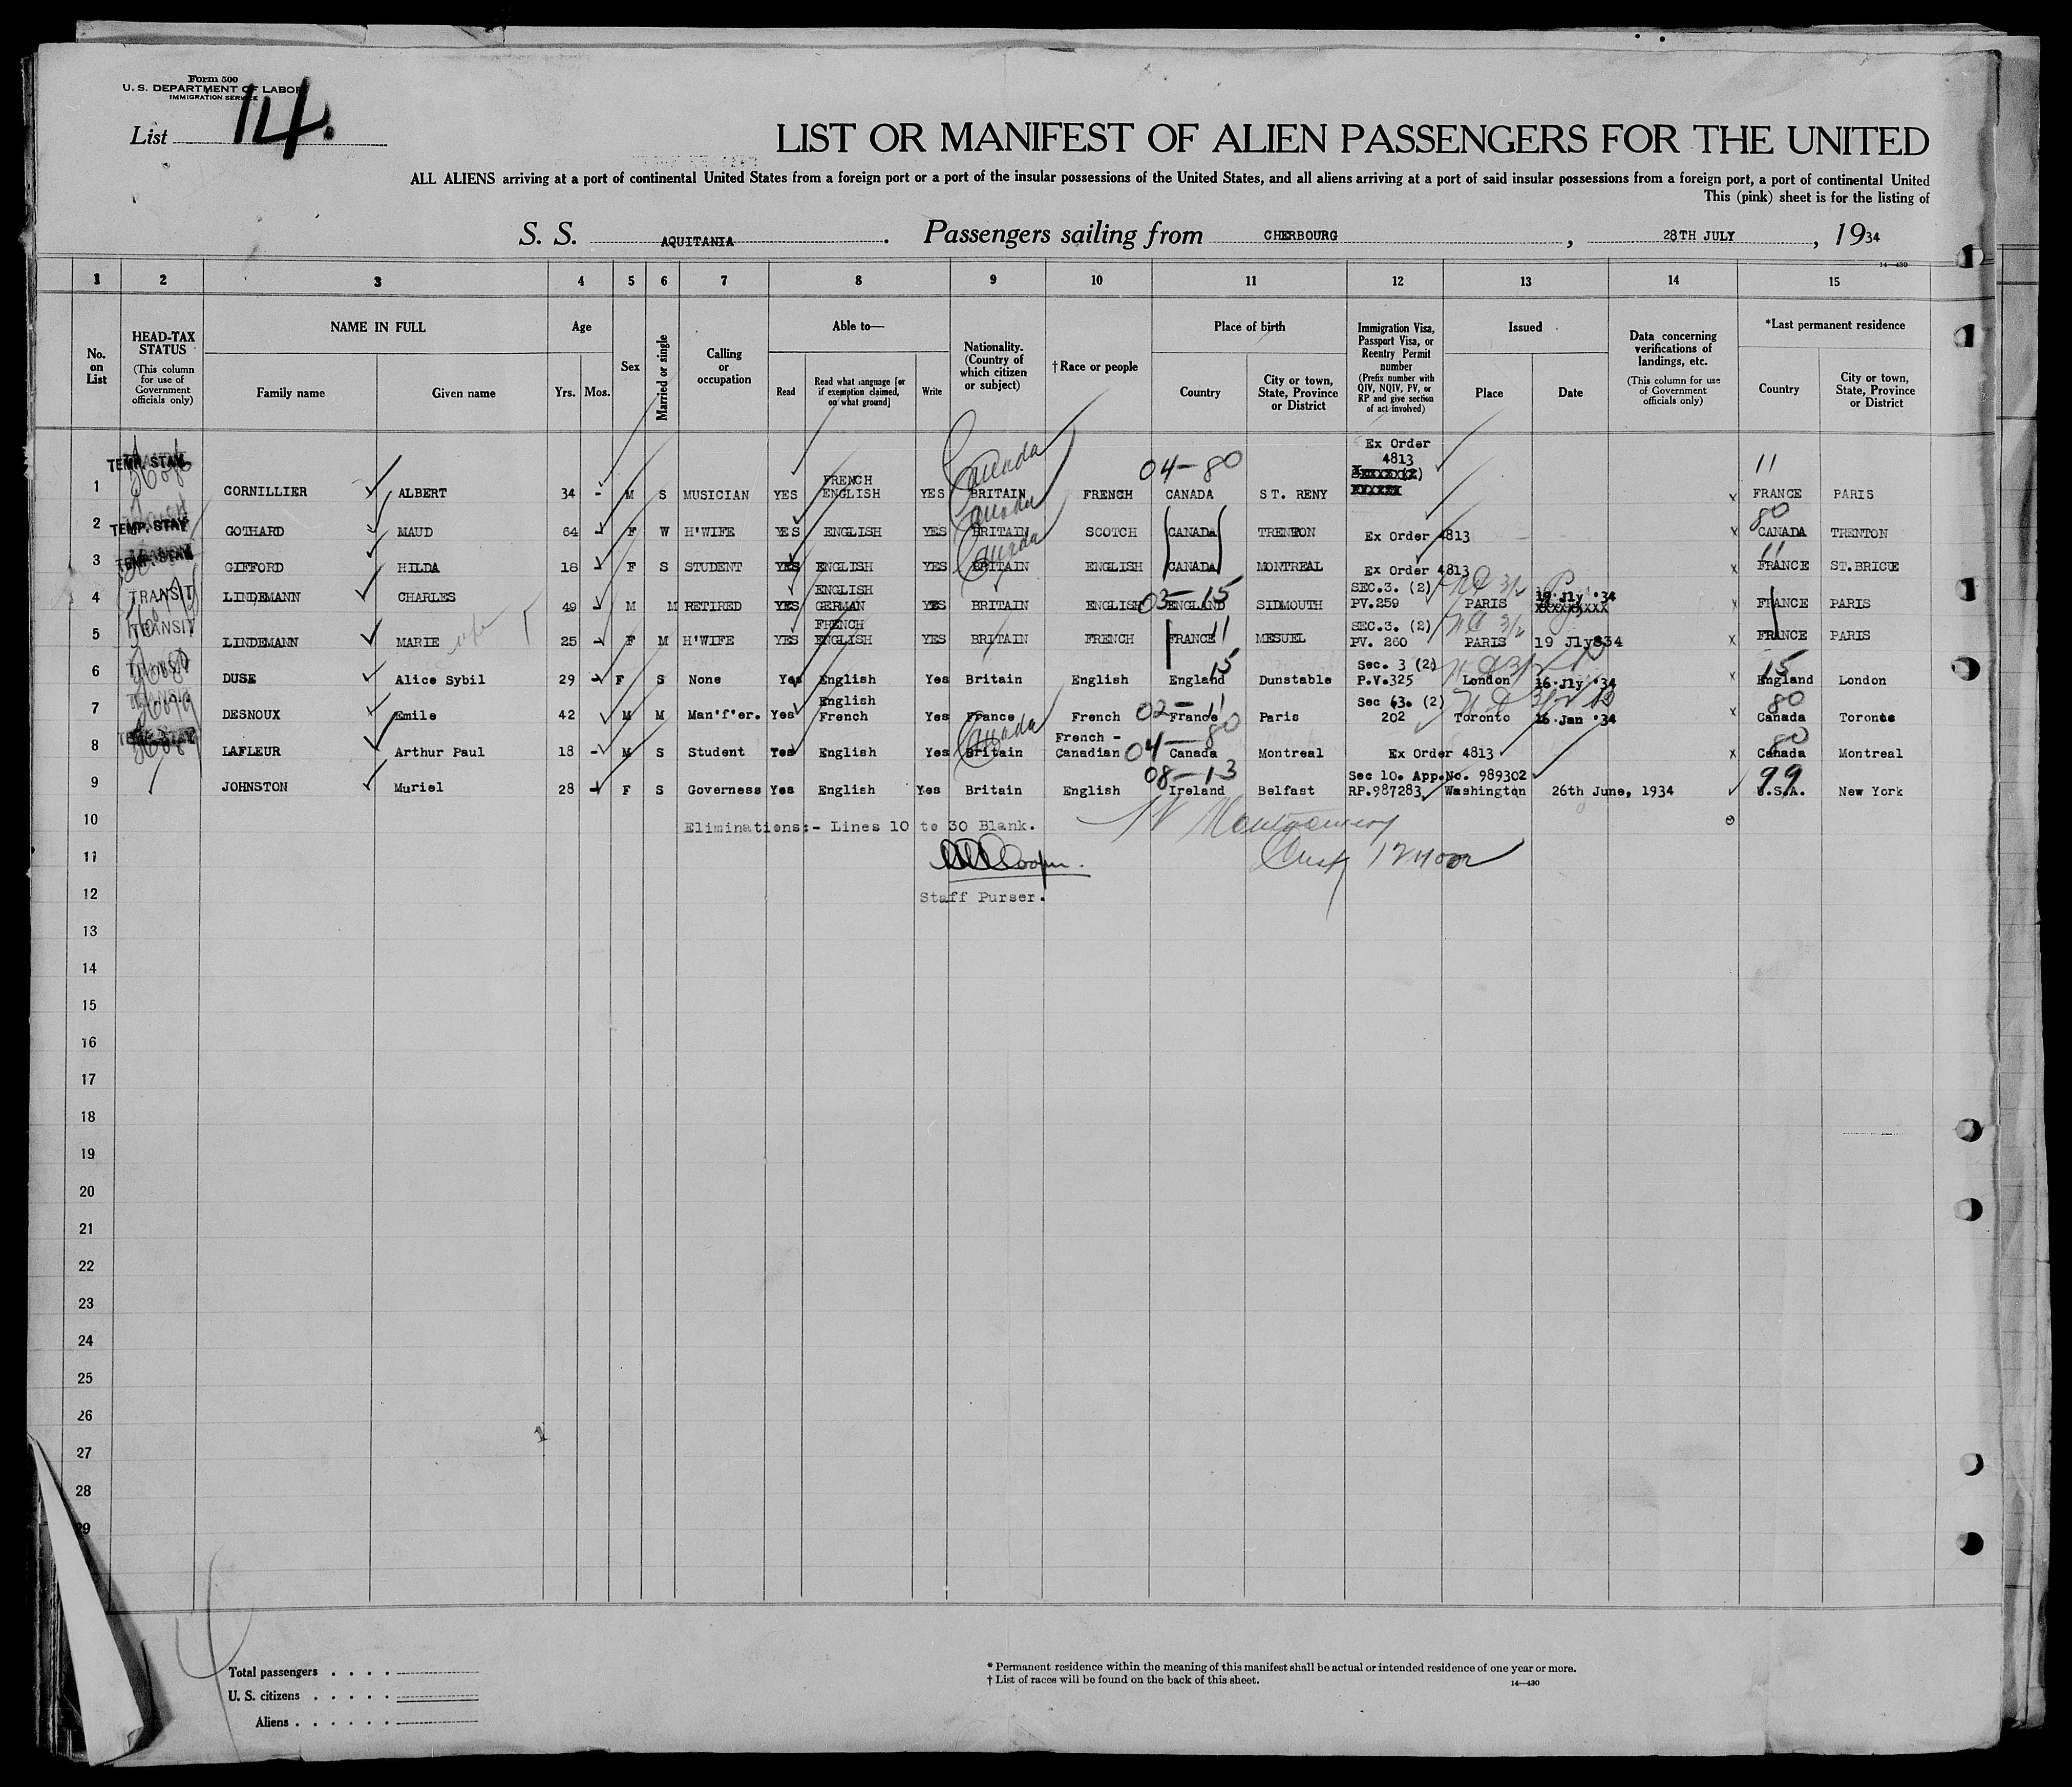 Form 500
U. S. DEPARTMENT OF LABOR
IMMIGRATION SERVICE
List 14.
LIST OR MANIFEST OF ALIEN PASSENGERS FOR THE UNITED
ALL ALIENS arriving at a port of continental United States from a foreign port or a port of the insular possessions of the United States, and all aliens arriving at a port of said insular possessions from a foreign port, a port of continental United
This (pink) sheet is for the listing of
S. S. AQUITANIA. Passengers sailing from CHERBOURG, 28TH JULY, 1934
14—430
1 2 3 4 5 6 7 8 9 10 11 12 13 14 15
No. on List
HEAD-TAX STATUS (This column for use of Government officials only)
NAME IN FULL Family name Given name
Age Yrs. Mos.
Sex
Married or single
Calling or occupation
Able to— Read Read what language [or if exemption claimed, on what ground] Write
Nationality. (Country of which citizen or subject)
† Race or people
Place of birth Country City or town, State, Province or District
Immigration Visa, Passport Visa, or Reentry Permit number (Prefix number with QIV, NQIV, PV, or RP and give section of act involved)
Issued Place Date
Data concerning verifications of landings, etc. (This column for use of Government officials only)
*Last permanent residence Country City or town, State, Province or District
1 TEMP. STAY CORNILLIER ALBERT 34 - M S MUSICIAN YES FRENCH ENGLISH YES BRITAIN Canada FRENCH 04-80 CANADA ST. RENY Ex Order 4813 x 11 FRANCE PARIS
2 TEMP. STAY GOTHARD MAUD 64 - F W H'WIFE YES ENGLISH YES BRITAIN Canada SCOTCH CANADA TRENTON Ex Order 4813 x 80 CANADA TRENTON
3 TEMP. STAY GIFFORD HILDA 18 - F S STUDENT YES ENGLISH YES BRITAIN Canada ENGLISH CANADA MONTREAL Ex Order 4813 x 11 FRANCE ST.BRICE
4 TRANSIT LINDEMANN CHARLES 49 - M M RETIRED YES ENGLISH GERMAN YES BRITAIN ENGLISH 03-15 ENGLAND SIDMOUTH SEC.3. (2) PV.259 PARIS 19 Jly '34 x FRANCE PARIS
5 TRANSIT LINDEMANN MARIE wife 25 - F M H'WIFE YES FRENCH ENGLISH YES BRITAIN FRENCH 11 FRANCE MESUEL SEC.3. (2) PV. 260 PARIS 19 Jly834 x FRANCE PARIS
6 TRANSIT DUSE Alice Sybil 29 - F S None Yes English Yes Britain English 15 England Dunstable Sec. 3 (2) P.V.325 London 16 Jly '34 x 15 England London
7 TRANSIT DESNOUX Emile 42 M M Man'f'er. Yes English French Yes France French 02-11 France Paris Sec 3. (2) 202 Toronto 16 Jan '34 x 80 Canada Toronto
8 TEMP. STAY LAFLEUR Arthur Paul 18 - M S Student Yes English Yes Britain Canada French - Canadian 04-80 Canada Montreal Ex Order 4813 x 80 Canada Montreal
9 JOHNSTON Muriel 28 - F S Governess Yes English Yes Britain English 08-13 Ireland Belfast Sec 10. App.No. 989302 RP.987283 Washington 26th June, 1934 99 U.S.A. New York
10 Eliminations:- Lines 10 to 30 Blank. Montgomery
11 Cooper.
12 Staff Purser.
13
14
15
16
17
18
19
20
21
22
23
24
25
26
27
28
29
Total passengers . . . .
U. S. citizens . . . . .
Aliens . . . . . .
* Permanent residence within the meaning of this manifest shall be actual or intended residence of one year or more.
† List of races will be found on the back of this sheet.
14—430